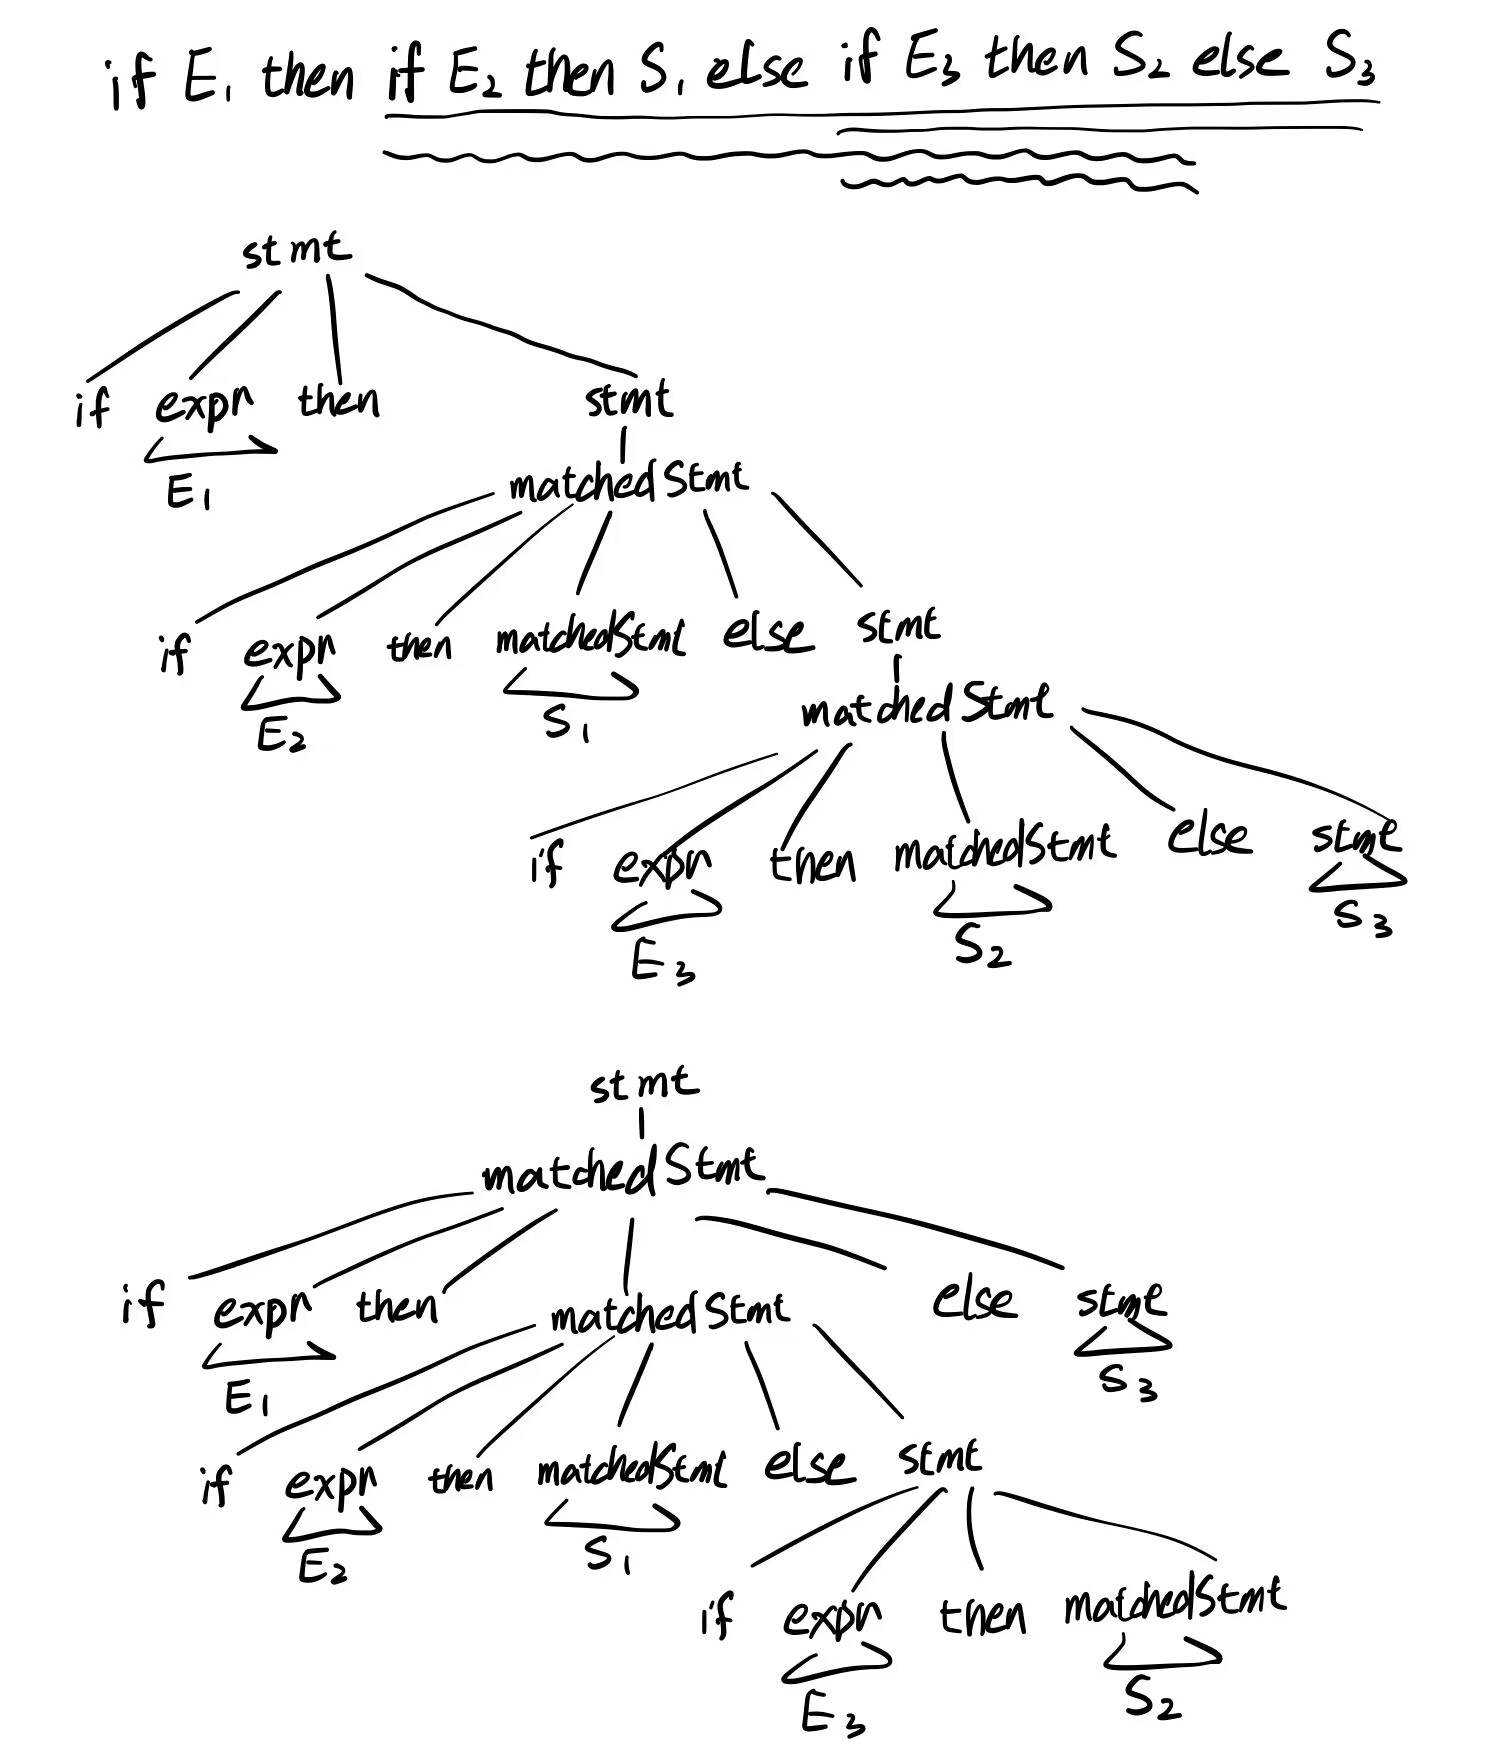 if E1 then if E2 then S1 else if E3 then S2 else S3
stmt
if expr then stmt
E1
matchedStmt
if expr then matchedStmt else stmt
E2 S1
matchedStmt
if expr then matchedStmt else stmt
E3 S2 S3
stmt
matchedStmt
if expr then matchedStmt else stmt
E1 S3
if expr then matchedStmt else stmt
E2 S1
if expr then matchedStmt
E3 S2